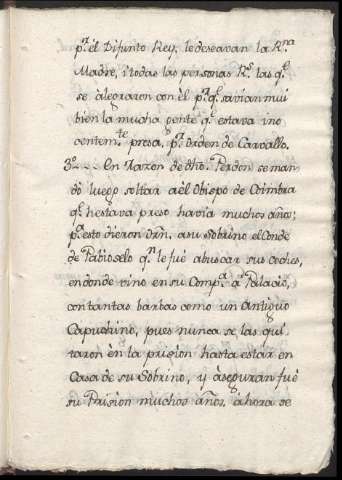 pr. él Difunto Rey, le deseavan la Rna
Madre, i todas las personas Rs. las qe.
se àlegraron con èl pr. q. savian mui
bien la mucha gente q. estava ino
centemte. presa, pr. orden de Carvallo.
3o. --- En razon de dho. Perdon se man
dò luego soltar a èl Obispo de Coimbra
q. hestava preso havia muchos años;
pa. esto dieron orn. a su Sobrino el Conde
de Pabioselo qn. le fuè a buscar sus coches,
en donde vino en su Compa. a Palacio,
con tantas barbas como un Antiguo
Capuchino, pues nunca se las qui
taron èn la prision hasta estàr en
Casa de su Sobrino, y àseguran fuè
su Prision muchos años, àhora se